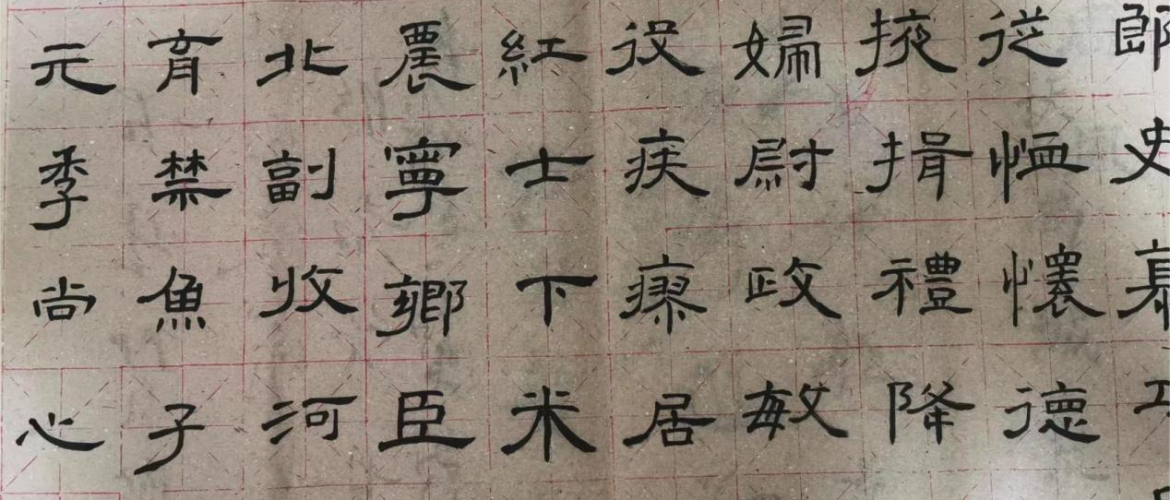 郎史
従恤懷德
掖揖禮降
婦尉政敏
役疾瘳居
紅士下米
農寧鄉臣
北副收河
育禁魚子
元季尚心